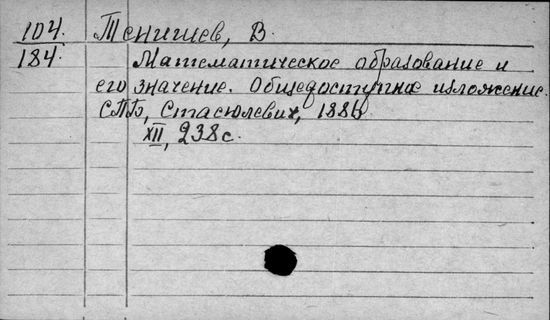 104. Тенишев, В.
184. Математическое образование и
его значение. Общедоступное изложение.
СПБ, Стасюлевич, 1886
XII, 238 с.